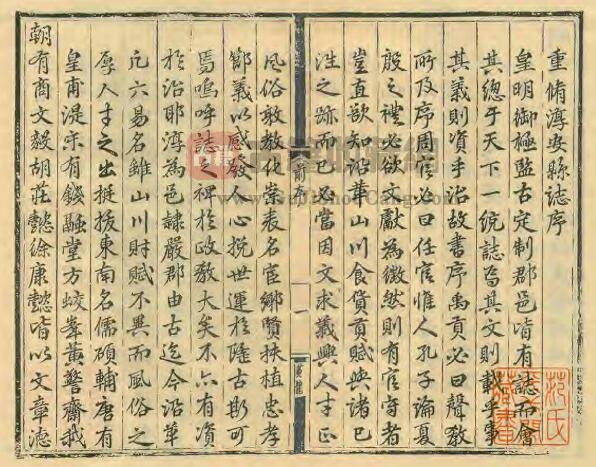 重脩淳安縣誌序
皇明御極監古定制郡邑皆有誌而會
其總于天下一統誌焉其文則載乎事
其義則資乎治故書序禹貢必曰聲教
所及序周官必曰任官惟人孔子論夏
殷之禮必欲文獻為徵然則有官守者
豈直欲知沿華山川食貨貢賦與諸已
徃之跡而已必當因文求義興人才正
前序
一
風俗敦教化案表名宦鄉賢扶植忠孝
節義以感發人心挽世運於隆古斯可
焉嗚呼誌之裨於政教大矣不亦有資
於治耶淳為邑隸嚴郡由古迄今沿革
凡六易名雖山川財賦不異而風俗之
厚人才之出挺拔東南名儒碩輔唐有
皇甫湜宋有錢融堂方蛟峯黃警齋我
朝有商文毅胡莊懿徐康懿皆以文章德
范氏
藏書